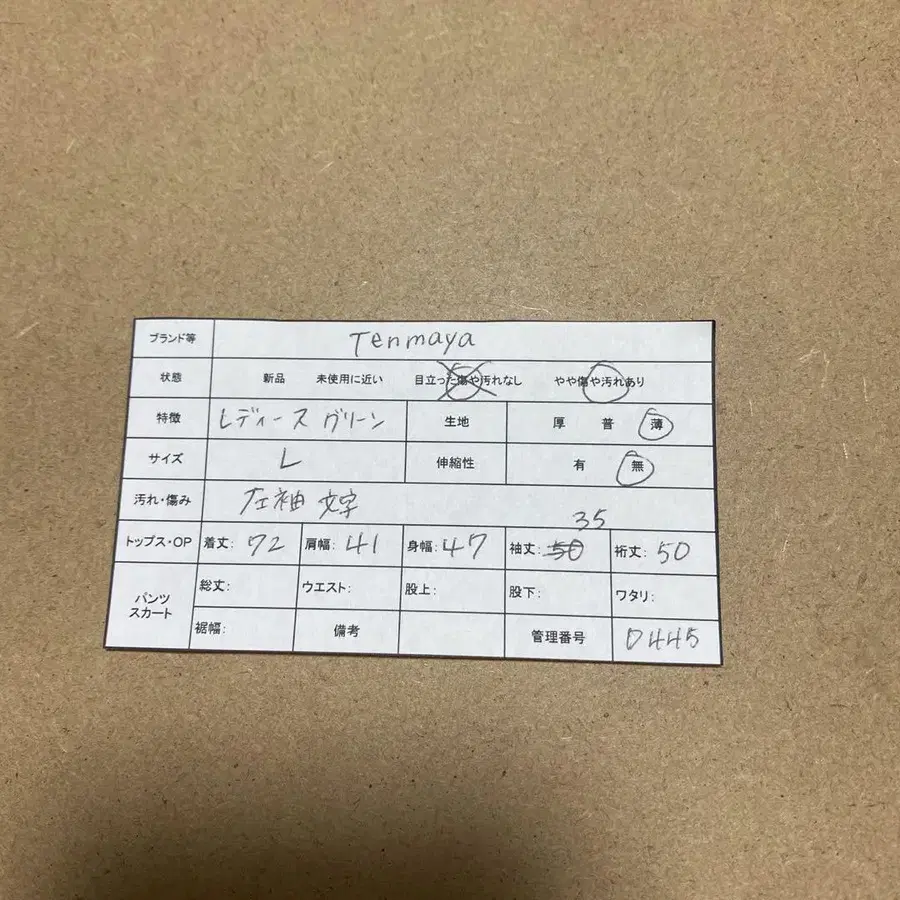 ブランド等 Tenmaya
状態 新品 未使用に近い 目立った傷や汚れなし やや傷や汚れあり
特徴 レディース グリーン 生地 厚 普 薄
サイズ L 伸縮性 有 無
汚れ・傷み 左袖 文字
35
トップス・OP 着丈: 72 肩幅: 41 身幅: 47 袖丈: 50 裄丈: 50
パンツ スカート 総丈: ウエスト: 股上: 股下: ワタリ:
裾幅: 備考 管理番号 D445